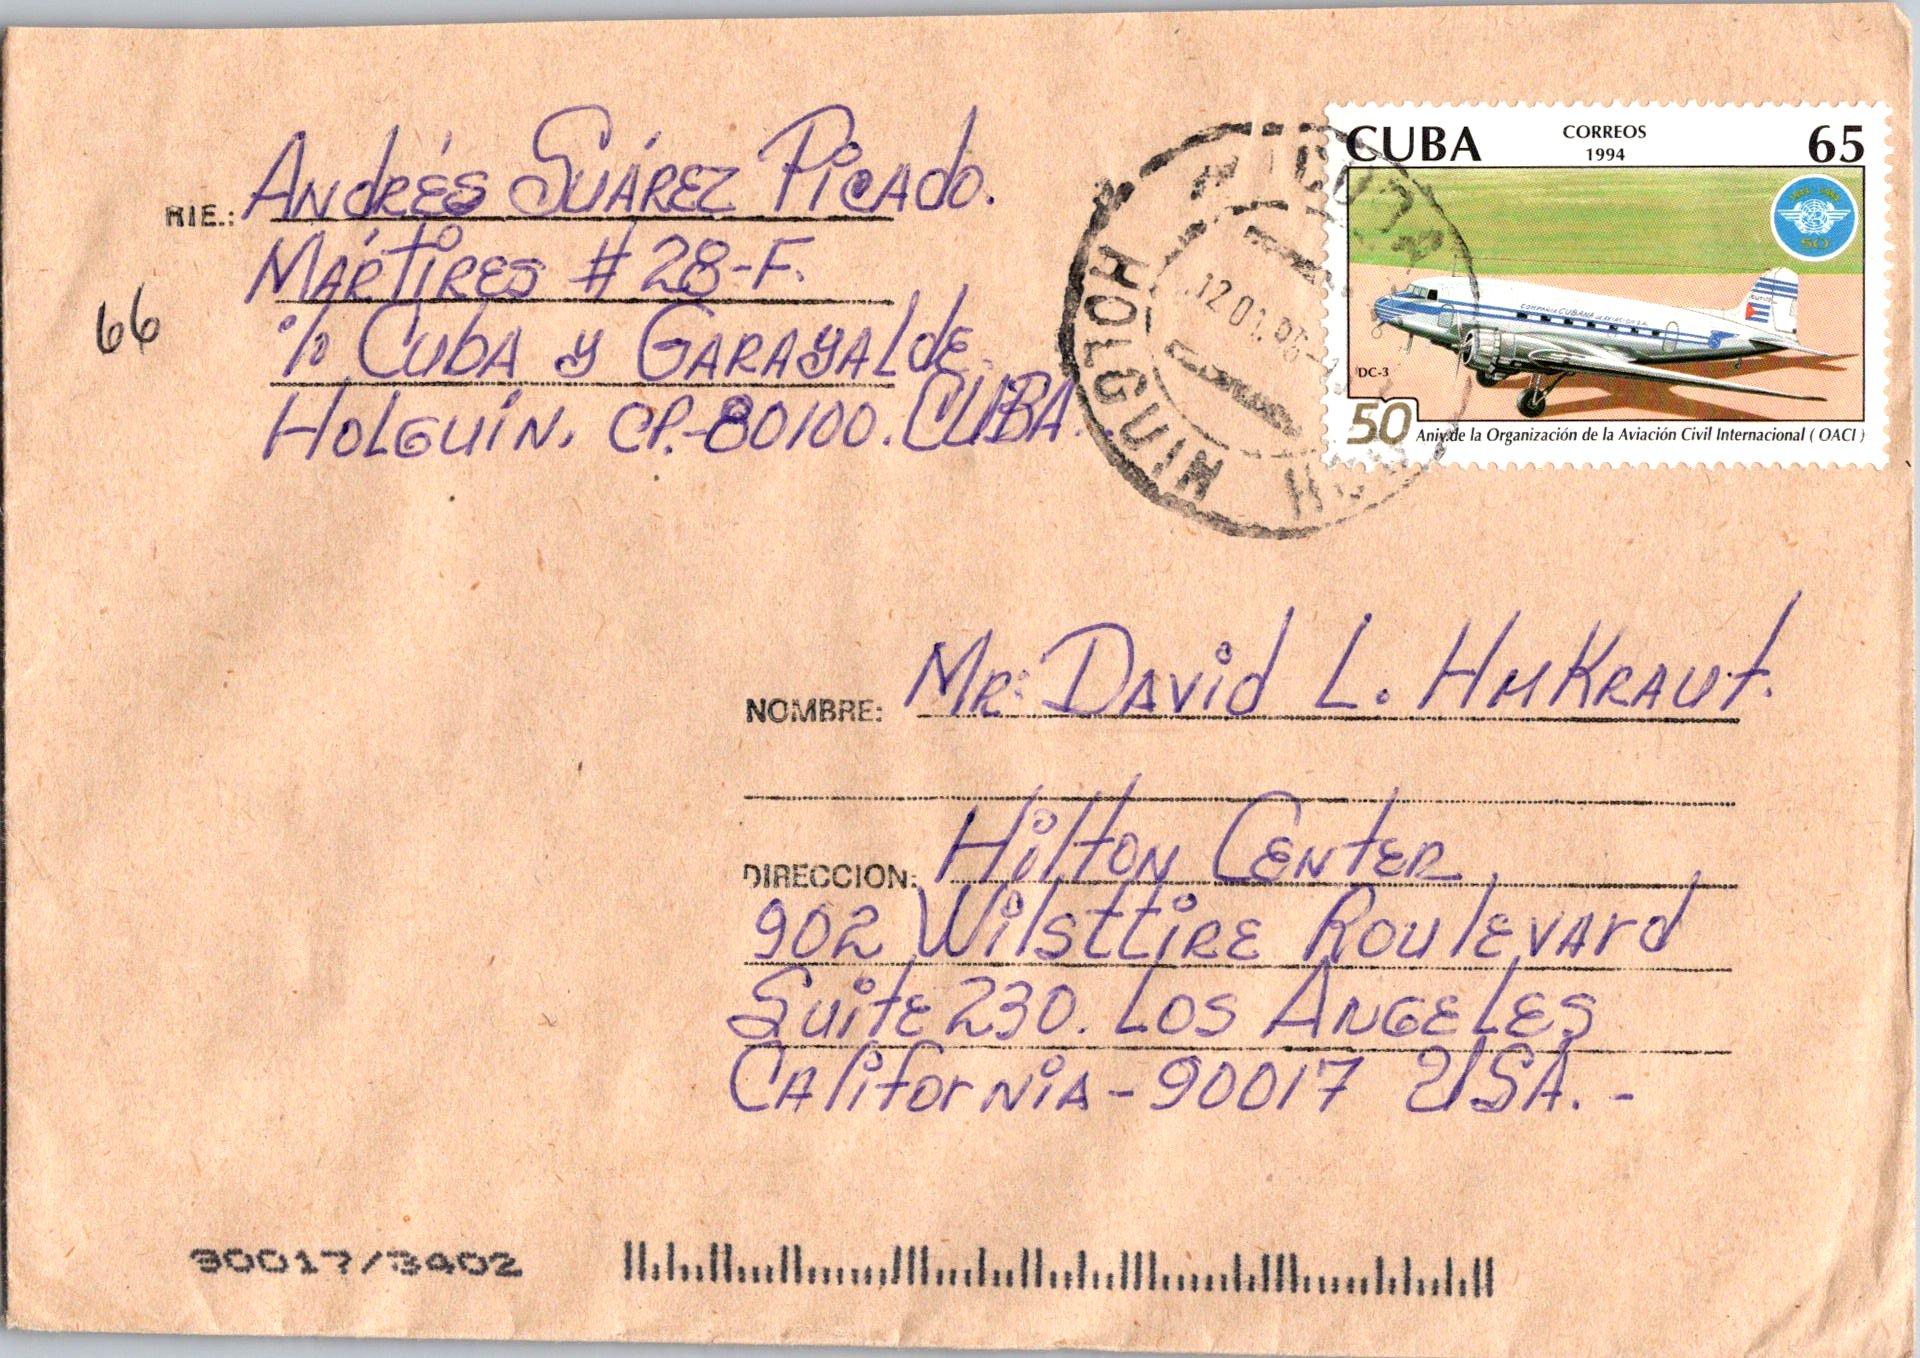 RIE.: ANdRÉS SUÁREZ PiCAdO.
MÁRTIRES # 28-F.
66
%o CUbA y GARAYALdE.
HOLGUÍN. CP.-80100. CUBA.
CUBA CORREOS 65
1994
50
COMPAÑIA CUBANA DE AVIACION S.A.
DC-3
50 Aniv.de la Organización de la Aviación Civil Internacional ( OACI )
HOLGUIN
12 01
NOMBRE: MR: DAVid L. HMKRAUt.
DIRECCION: HiltON CENtER
902 WilsttiRE ROUlEVARd
SUitE 230. LOS ANGELES
CAlifORNiA - 90017 USA. -
90017/3402